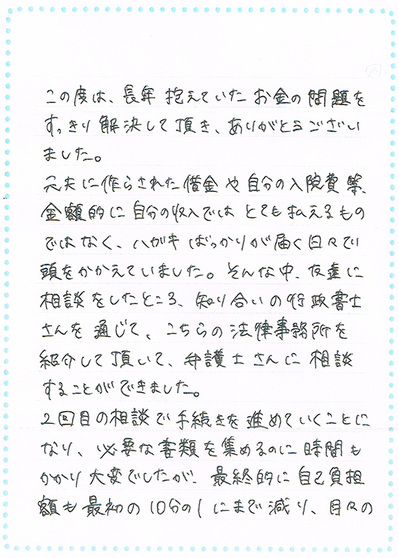 この度は、長年 抱えていた お金の 問題を
すっきり 解決して 頂き、ありがとうござい
ました。
元夫に作らされた借金や自分の入院費等、
金額的に自分の収入では とても払えるもの
ではなく、ハガキ ばっかりが届く日々で
頭をかかえていました。そんな中、友達に
相談をしたところ、知り合いの行政書士
さんを 通じて、こちらの法律事務所を
紹介して頂いて、弁護士さんに 相談
することができました。
2回目の相談で手続きを進めていくことに
なり、必要な書類を集めるのに時間も
かかり大変でしたが、最終的に自己負担
額も最初の10分の1にまで減り、月々の